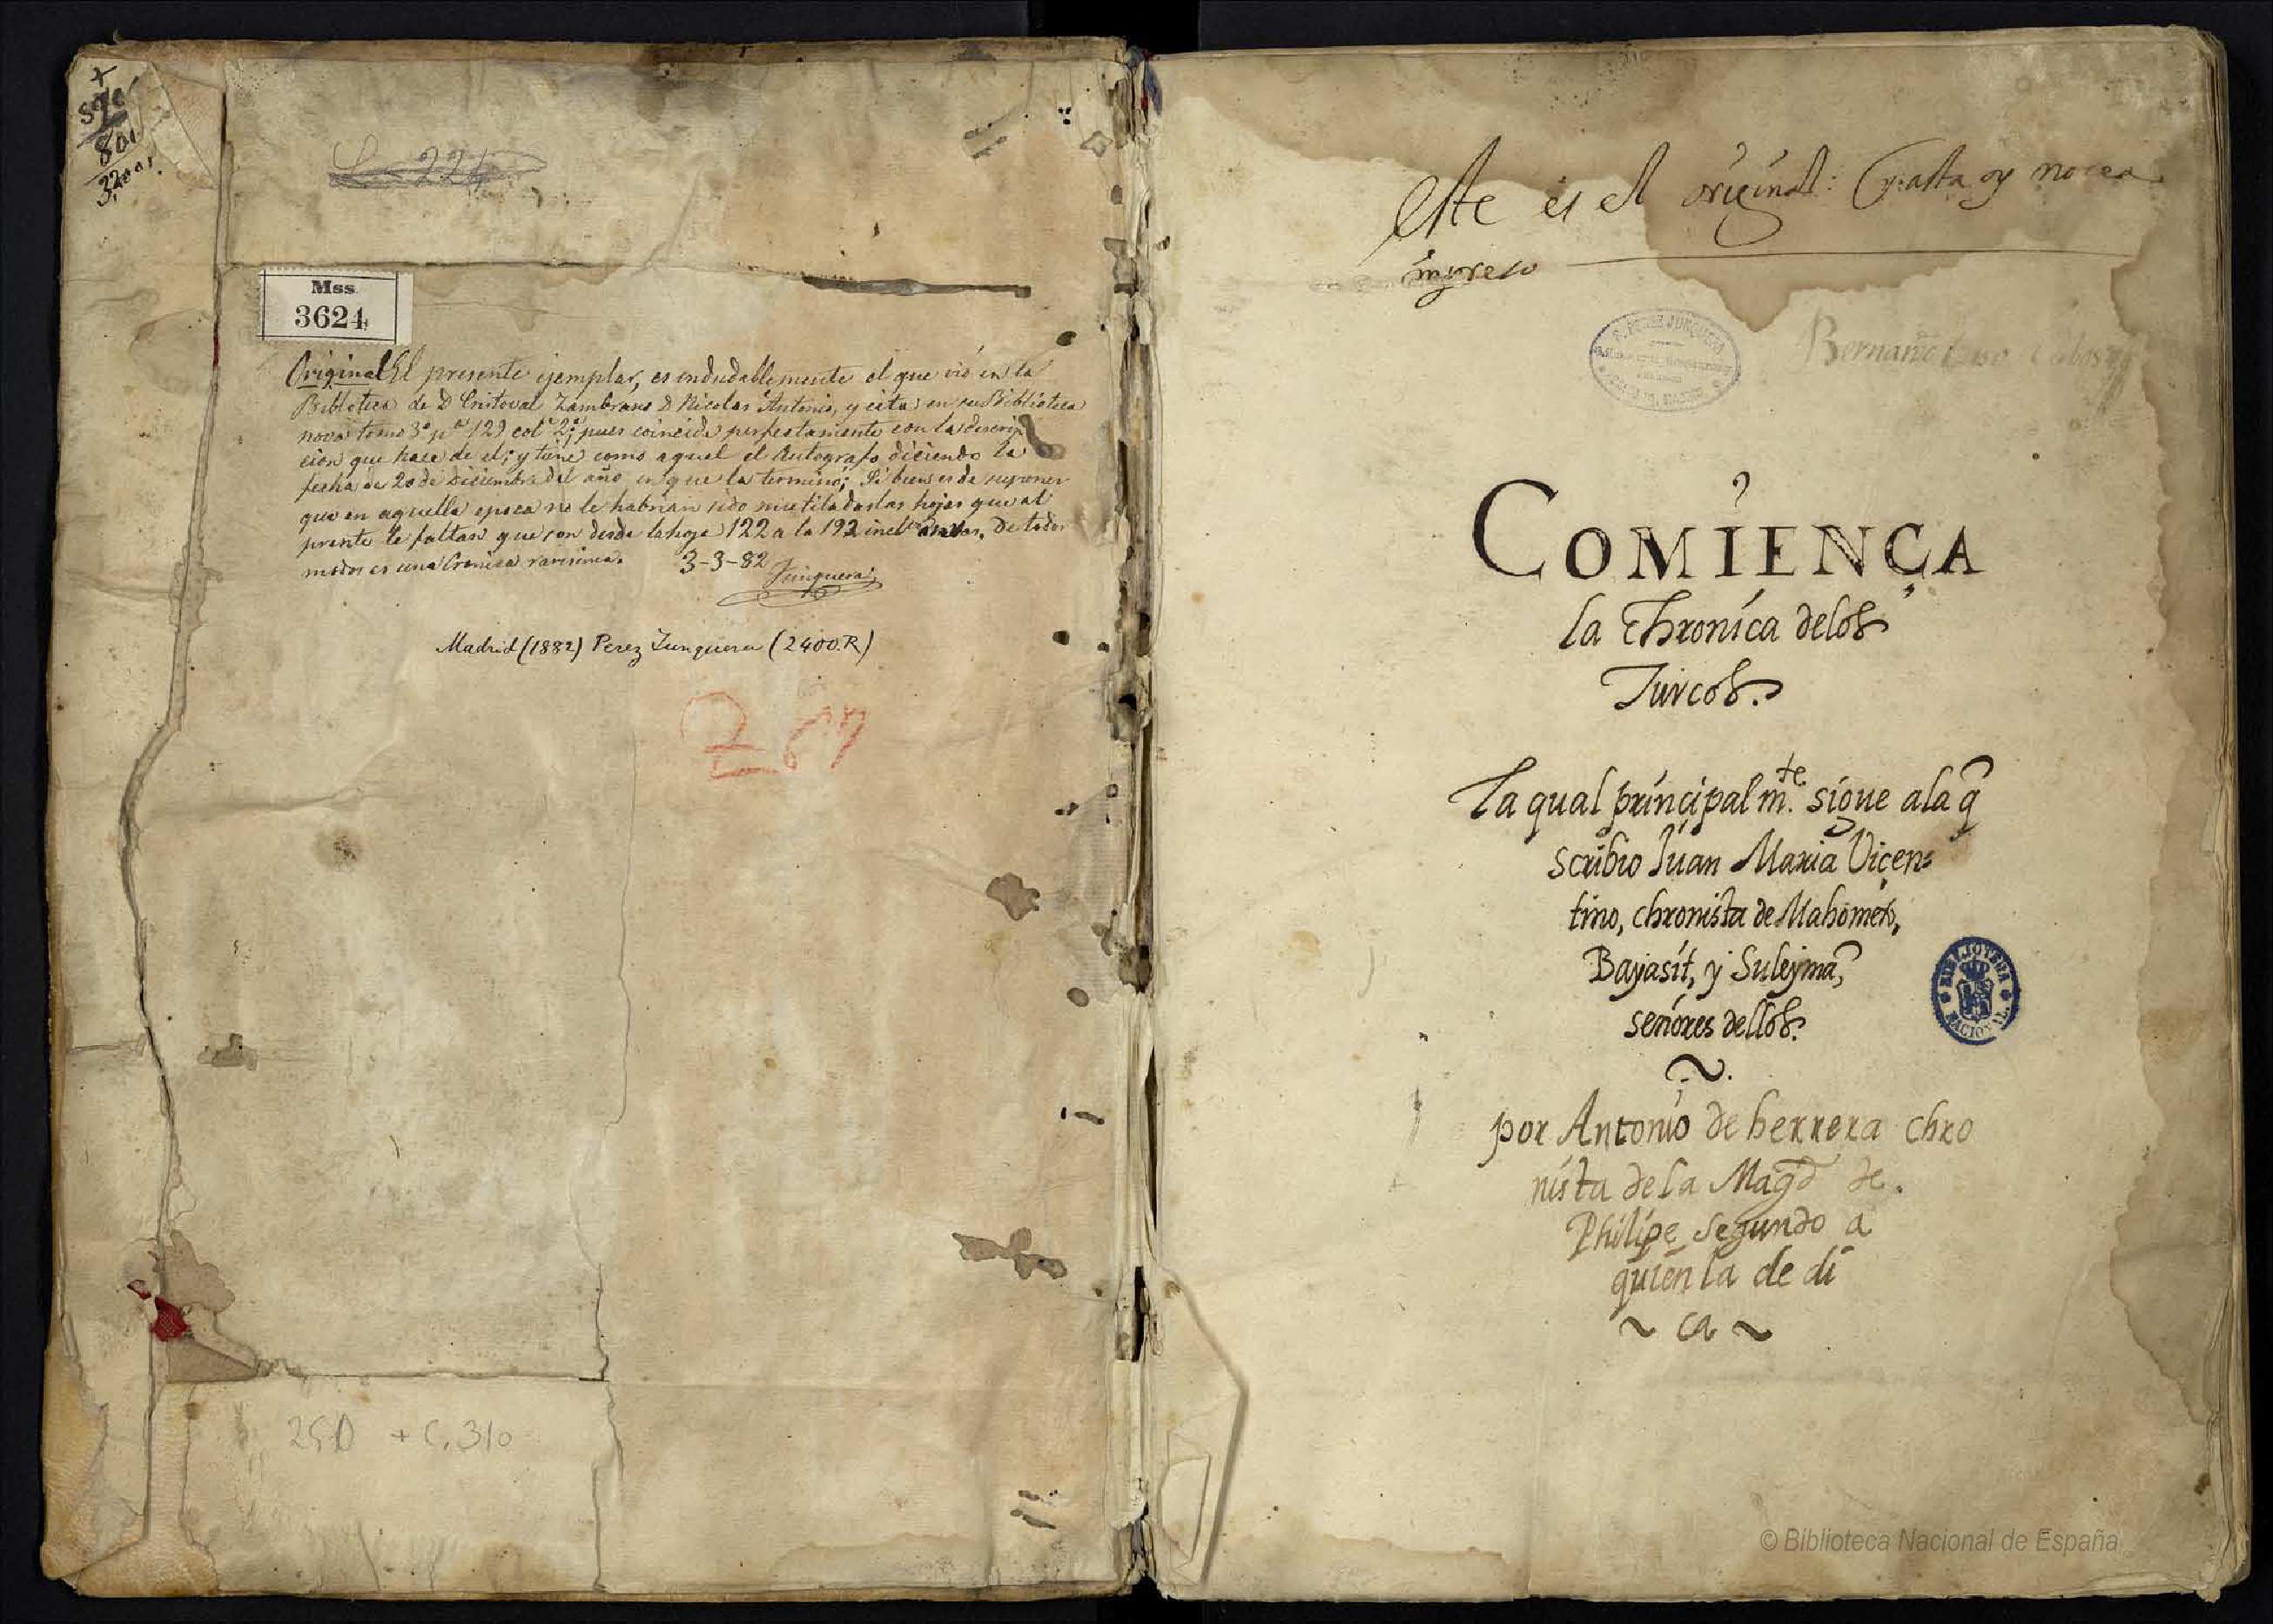 +
801
3200
L 224
Mss
3624
Original El presente ejemplar, es indudablemente el que vió en la
Biblioteca de D Cristoval Zambrano D Nicolas Antonio, y cita en su Biblioteca
nova tomo 3º pª 129 colª 2ª; pues coincide perfectamente con la descrip
cion que hace de el; y tiene como aquel el Autografo diciendo la
fecha de 20 de Diciembre del año en que la terminó; Si bien es de suponer
que en aquella epoca no le habrian sido mutiladas las hojas que al
presente le faltan que son desde la hoja 122 a la 192 De todos
modos es una Cronica rarisima. 3-3-82
Junquera
Madrid (1882) Perez Junquera (2400.R)
267
25D + C. 310
Este es el original: y asta oy no era
impreso
Bernardo
COMIENÇA
la Chronica delos
Turcos.
La qual principal m.te sigue ala q̃
scribio Juan Maria Viçen=
tino, chronista de Mahometo,
Bayasit, y Suleymã,
señores dellos.
~.
por Antonio de herrera chro
nista dela Magd de.
Philipe segundo a
quien la de di
~ ca ~
BIBLIOTECA NACIONAL
© Biblioteca Nacional de España